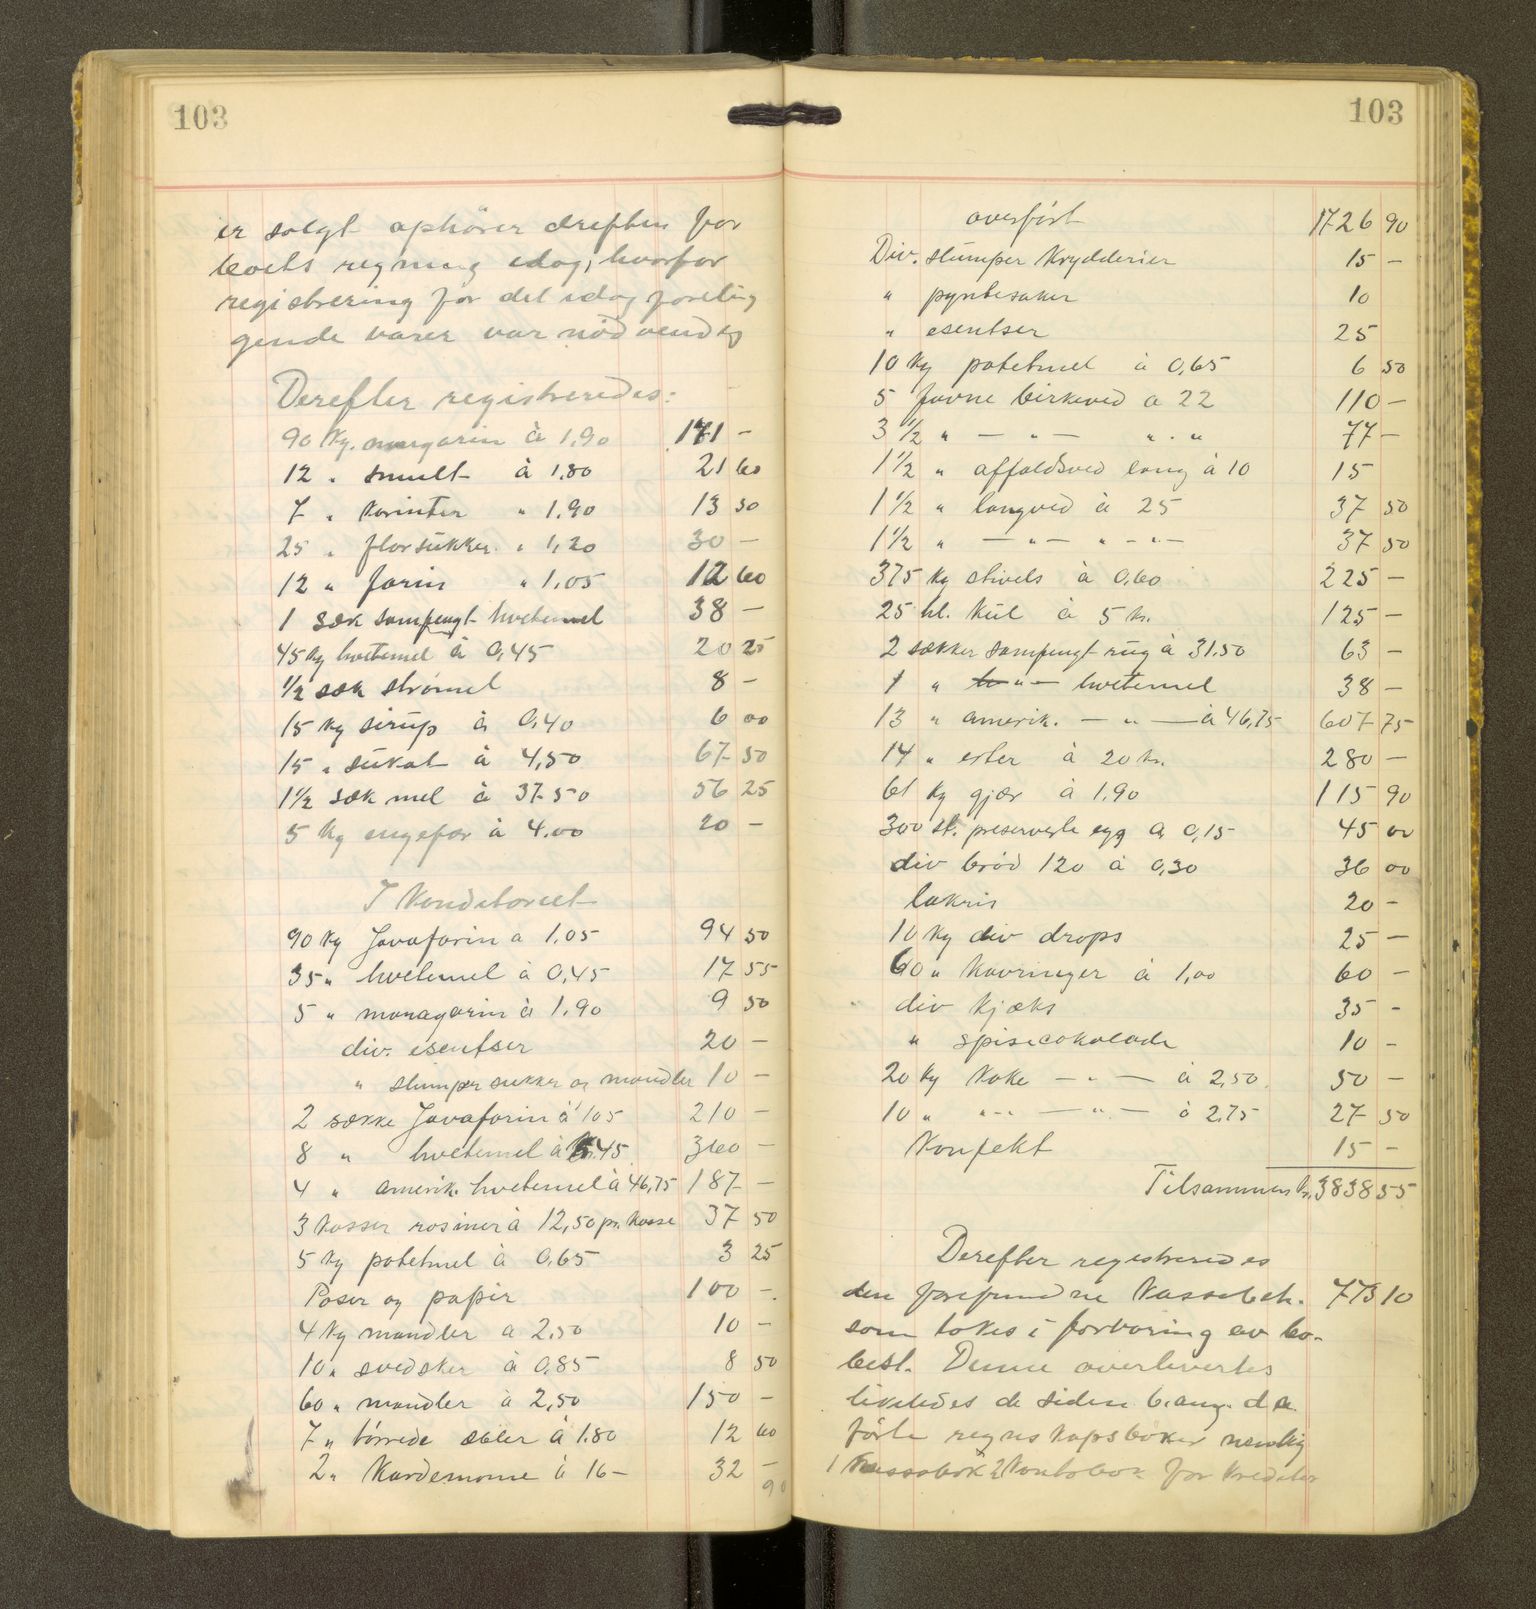 103
er solgt ophører driften for
boets regning idag, hvorfor
registrering for det idag forelig
gende varer var nødvendig
Derefter registreredes:
90 kg. margarin à 1,90 171 –
12 " smult à 1,80 21 60
7 " korinter " 1,90 13 30
25 " florsukker " 1,20 30 –
12 " farin " 1,05 12 60
1 sæk sampengt hvetemel 38 –
45 kg hvetemel à 0,45 20 25
1/2 sæk strømel 8 –
15 kg sirup à 0,40 6 00
15 " sukat à 4,50 67 50
1 1/2 sæk mel à 37.50 56 25
5 kg engefær à 4.00 20 –
I Konditoriet
90 kg Javafarin a 1,05 94 50
35 " hvetemel à 0,45 17 55
5 " monagarin à 1.90 9 50
div. esentser 20 –
" slumper sukker og mandler 10 –
2 sække Javafarin à 105 210 –
8 " hvetemel à 45 360 –
4 " amerik. hvetemel à 46,75 187 –
3 kasser rosiner à 12,50 pr. kasse 37 50
5 kg potetmel à 0,65 3 25
Poser og papir 100 –.
4 kg mandler a 2,50 10 –
10 " svedsker à 0,85 8 50
60 " mandler à 2,50 150 –
7 " tørrede æbler à 1.80 12 60
2 " Kardemome à 16 – 32 –
90
103
overført 1726 90
Div. slumper krydderier 15 –
" pyntesaker 10
" esentser 25
10 kg potetmel à 0,65 6 50
5 favne birkeved a 22 110 –
3 1/2 " – " – " . " 77 –
1 1/2 " affaldsved lang à 10 15
1 1/2 " langved à 25 37 50
1 1/2 " – " – " – " – 37 50
375 kg stivels à 0,60 225 –
25 hl. kul à 5 kr. 125 –
2 sækker sampengt rug à 31.50 63 –
1 " – " – hvetemel 38 –
13 " amerik. – " – à 46,75 607 75
14 " erter à 20 kr. 280 –
61 kg gjær à 1.90 115 90
300 st. preserverte egg a 0,15 45 00
div brød 120 à 0,30 36 00
lakris 20 –
10 kg div drops 25 –
60 " kavringer à 1,00 60 –
div kjæks 35 –
" spisecokolade 10 –
20 kg koke – " – à 2,50 50 –
10 " " – " – " – à 2,75 27 50
Konfekt 15 –
Tilsammen kr. 3838 55
Derefter registreredes
den forefundne kassebeh. 773 10
som tokes i forvaring av bo-
best. Denne overlevertes
likeledes de siden b. aug. d.a.
førte regnskapsbøker nemlig
1 kassabok 2 kontobok for kreditor